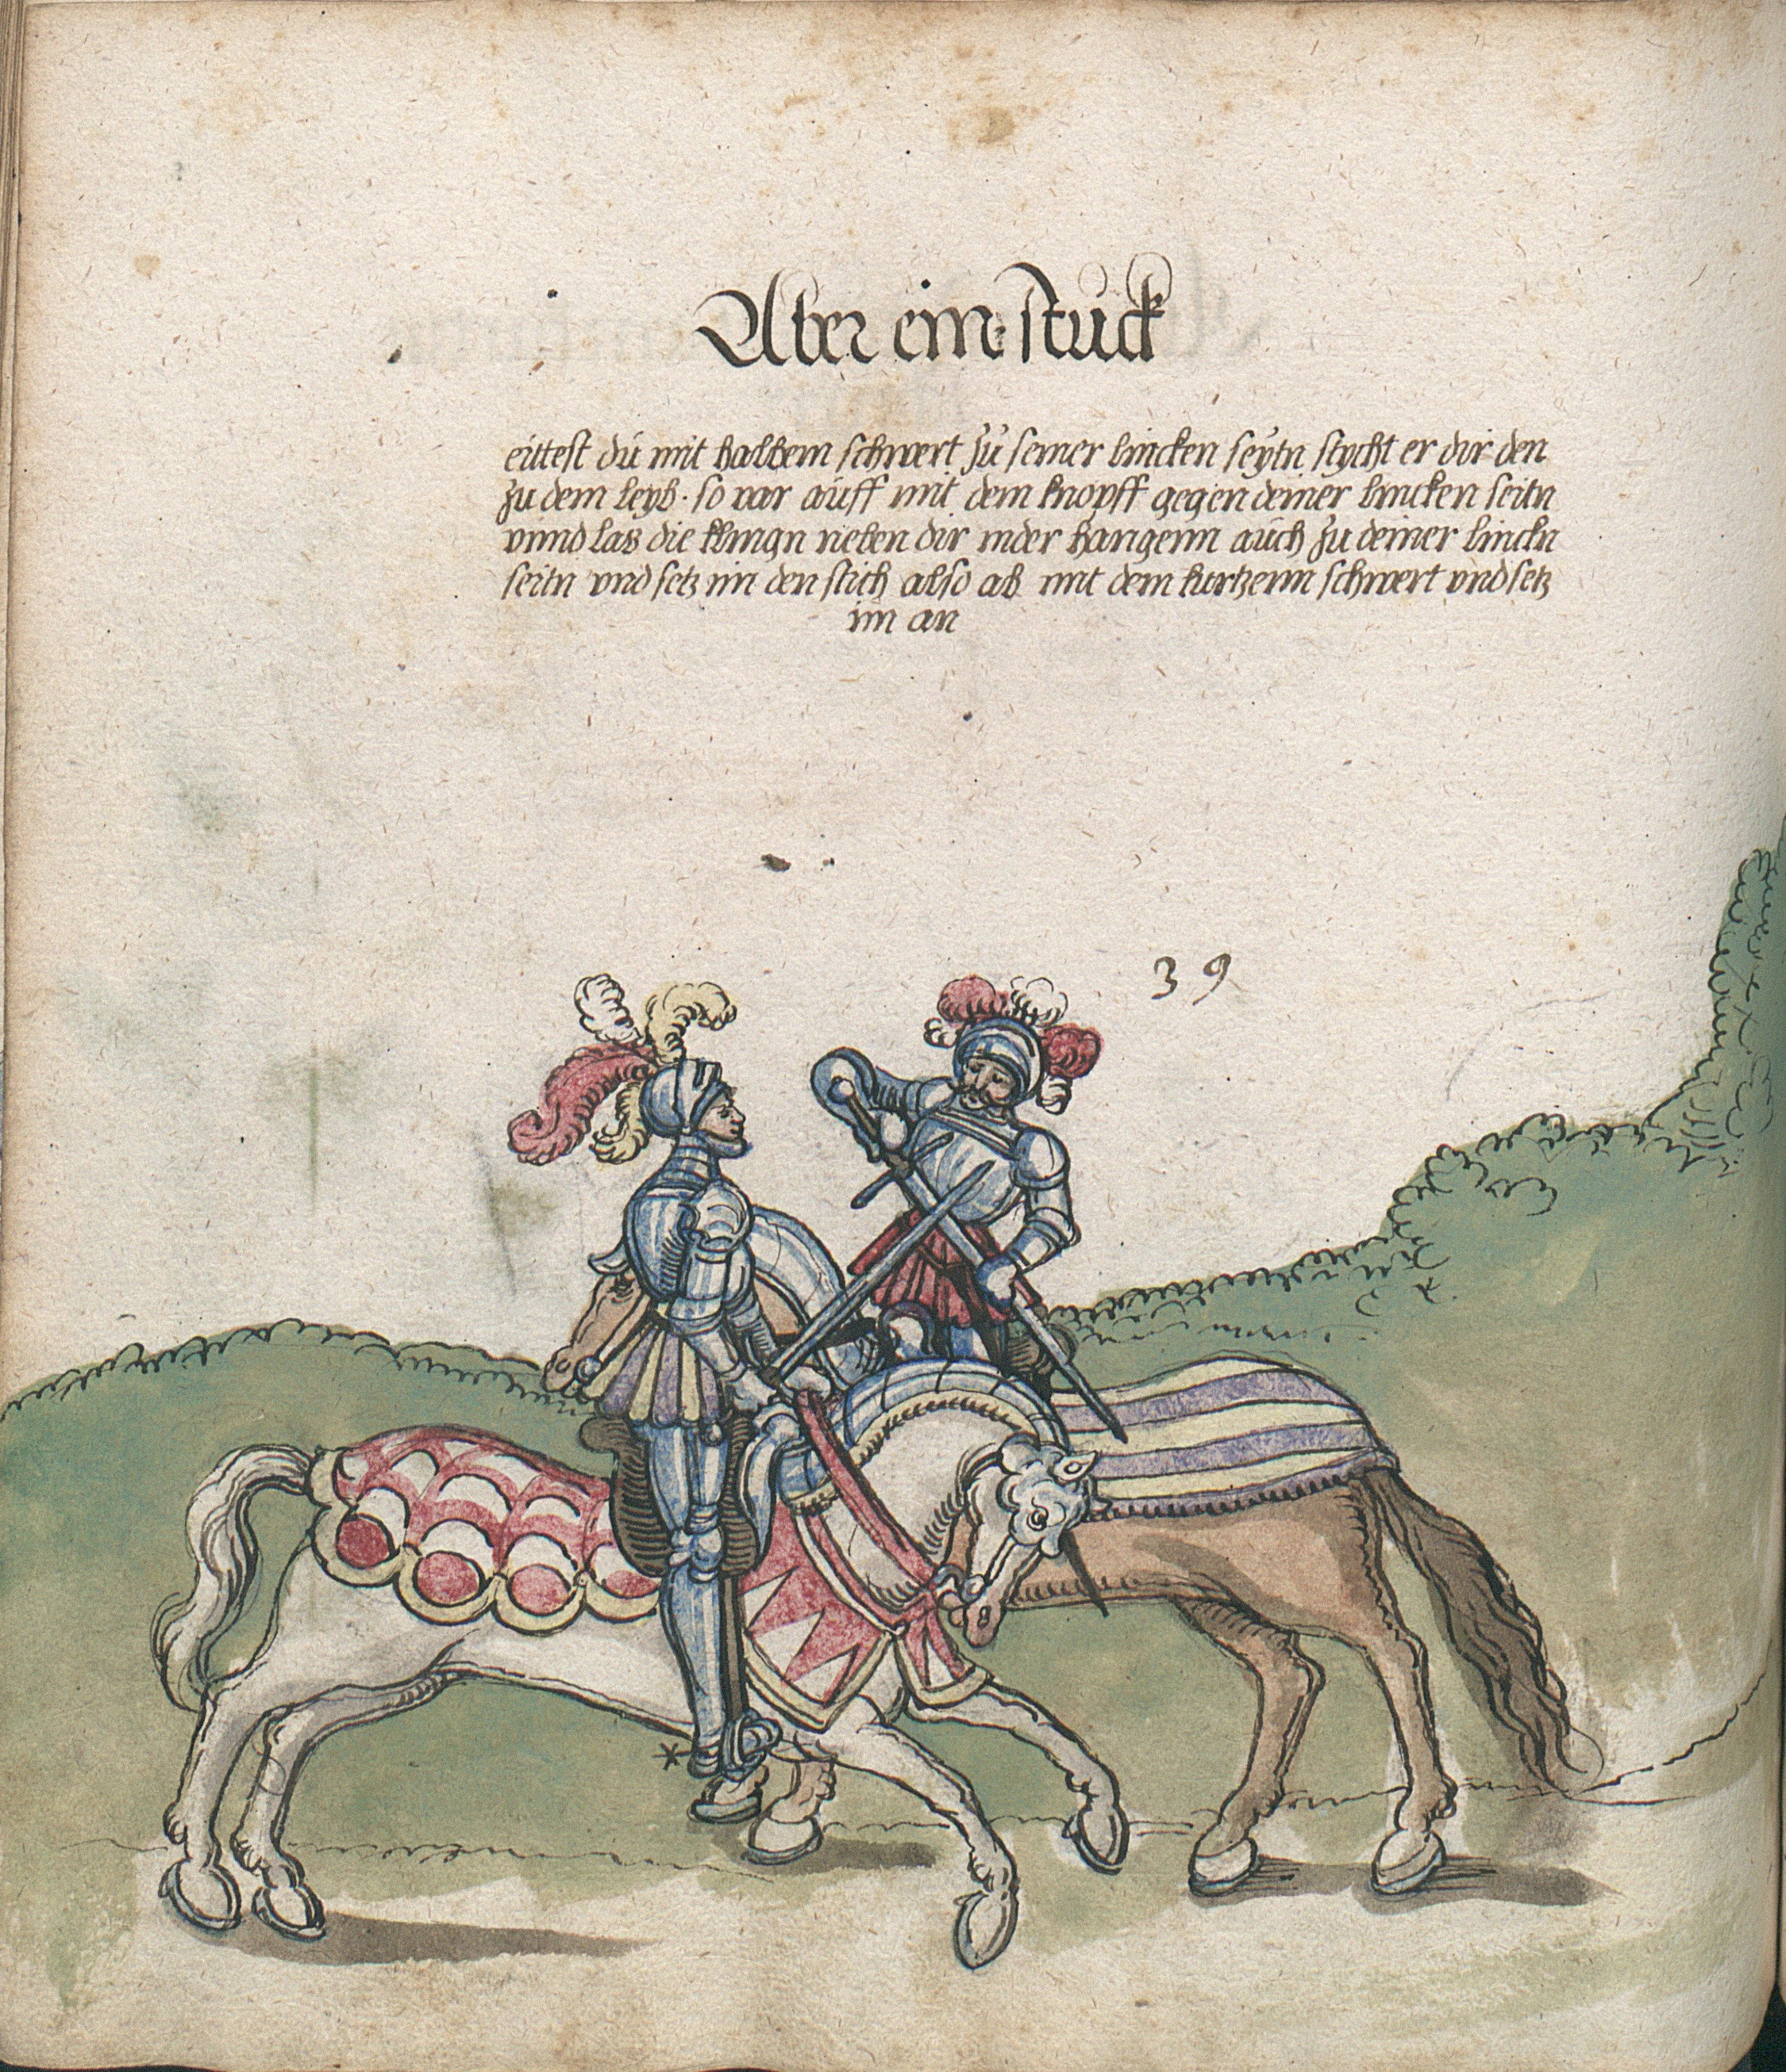 Aber ein stuck
eittest du mit halbem schwert zu seiner lincken seytn stycht er dir den
zu dem leyb · so var auff mit dem knopff gegen deiner lincken seitn
vnnd las die klingn neben dir nider hangenn auch zu deiner linckn
seitn vnd setz im den stich also ab mit dem kurtzenn schwert vnd setz
im an
39